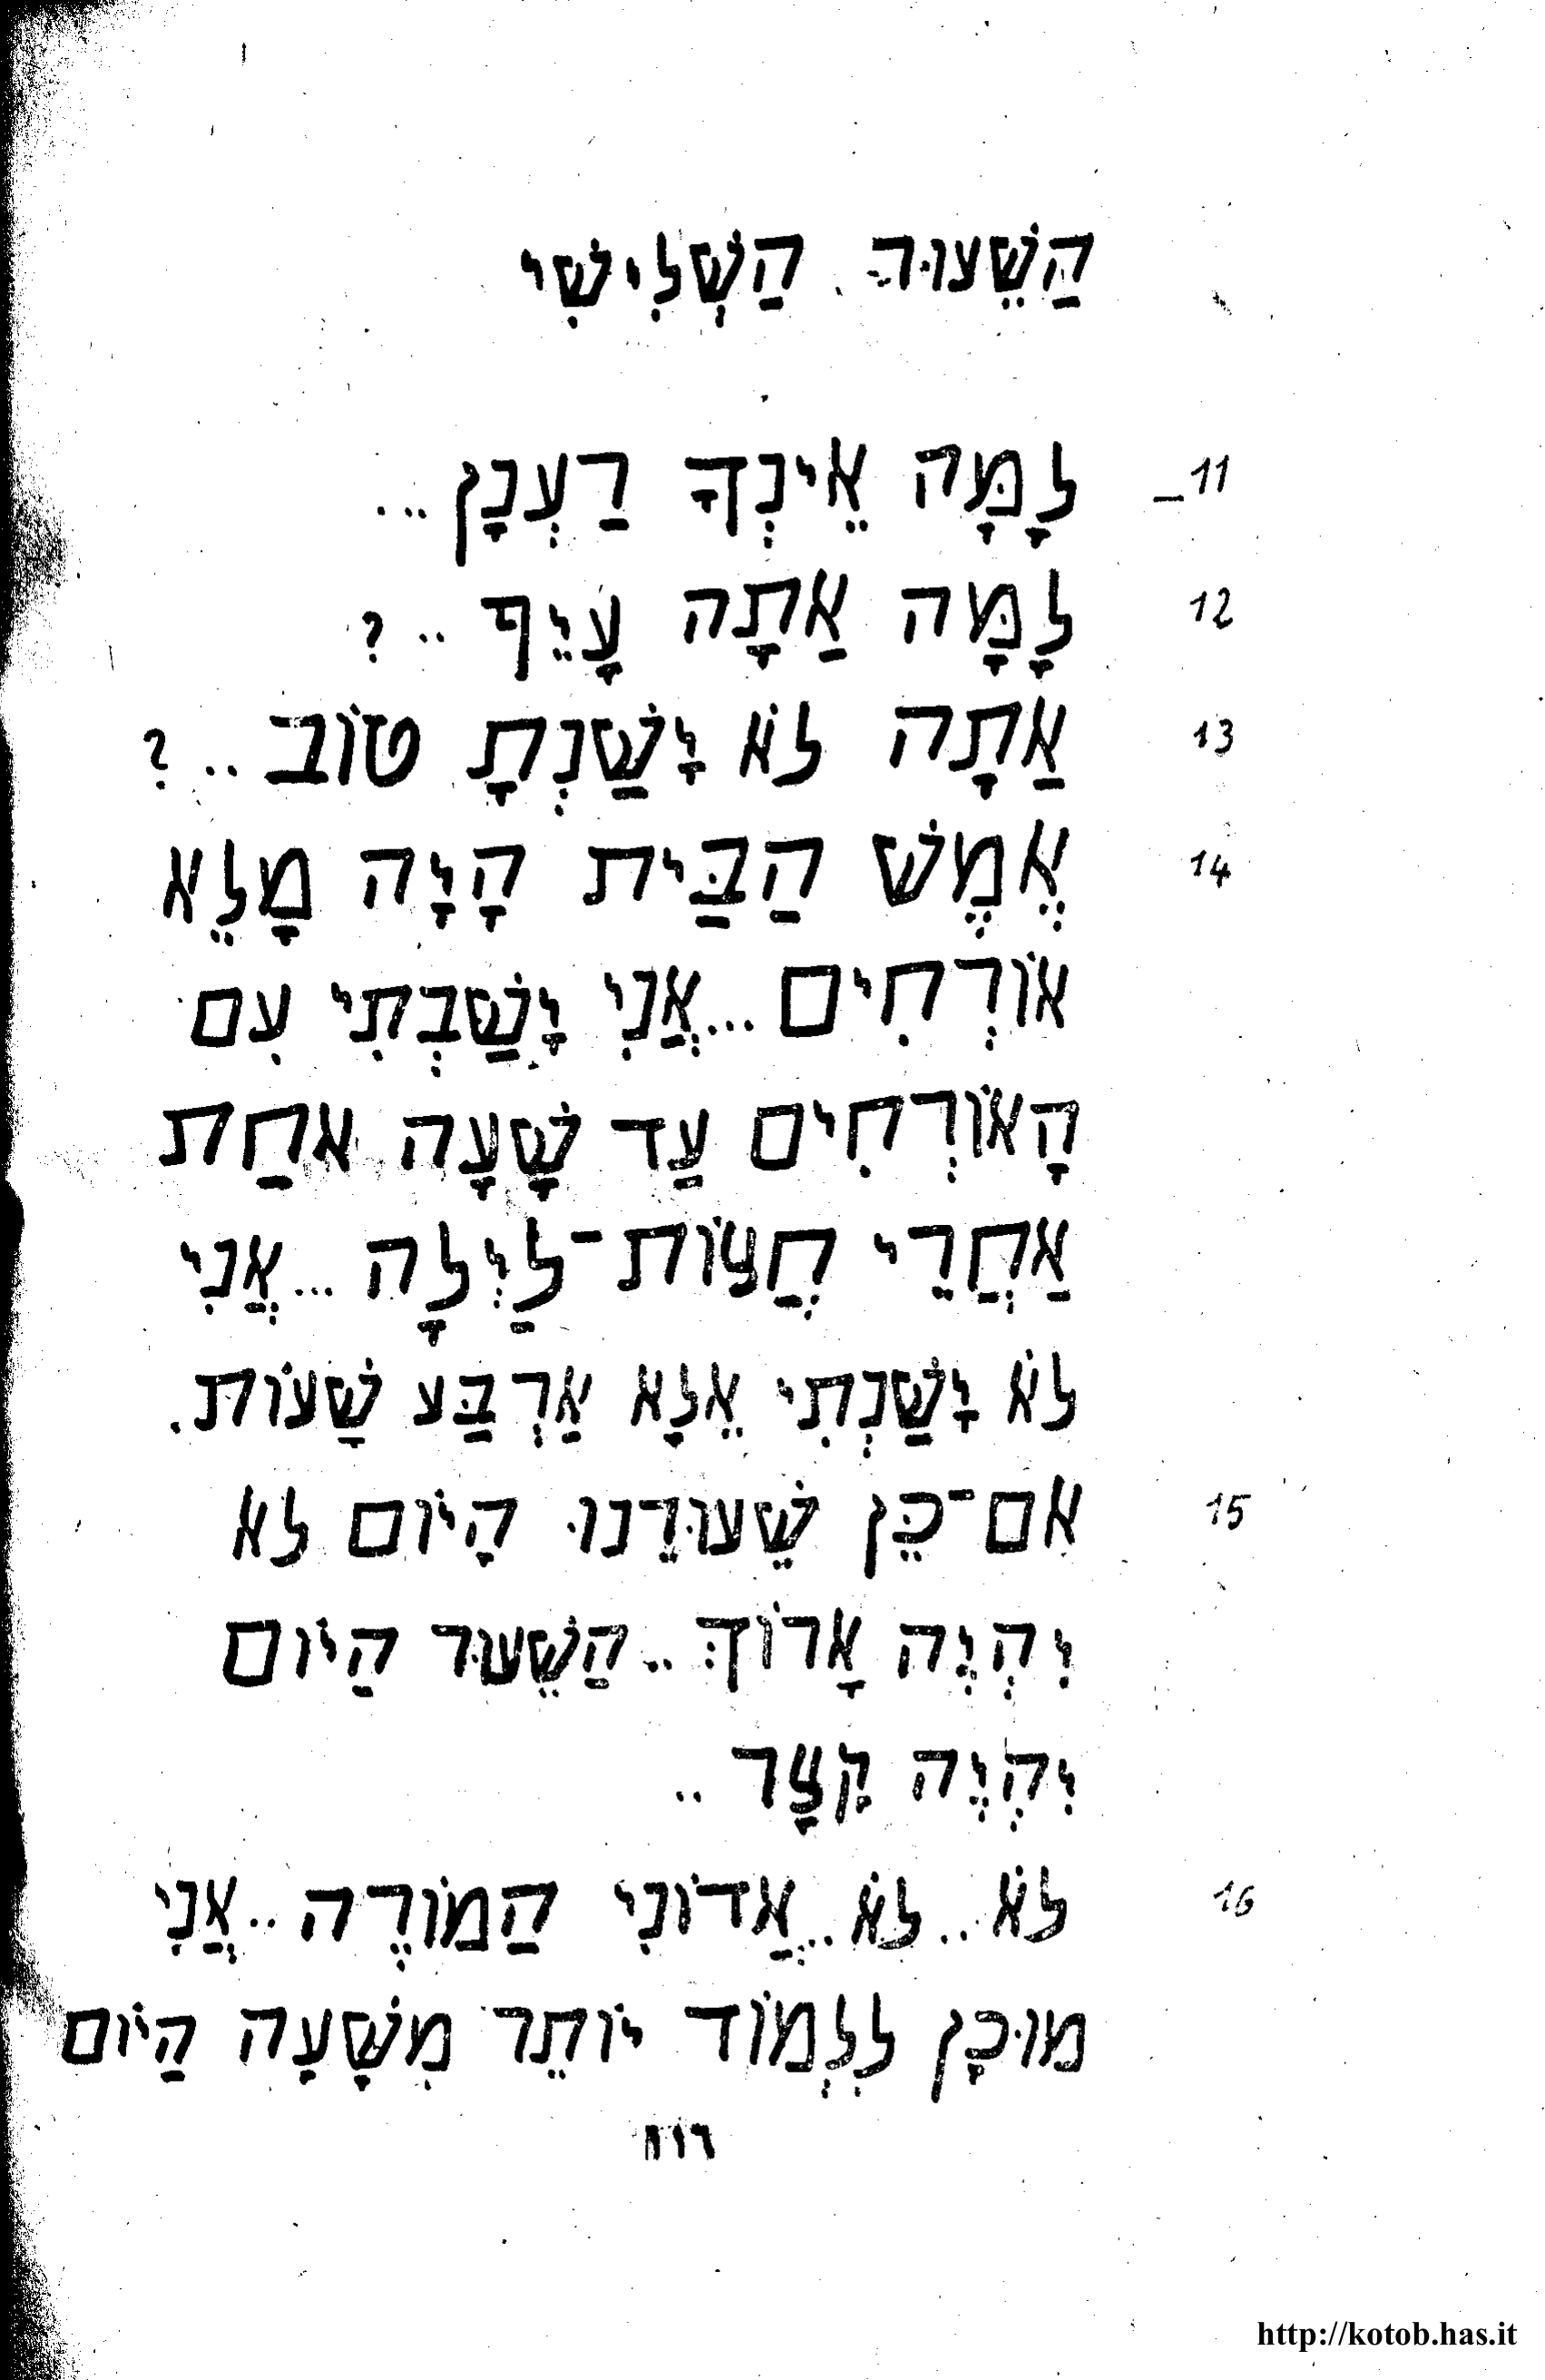 הַשֵּׁעוּר הַשְּׁלִישִׁי
11_ לָמָּה אֵינְךָ רַעְנָן...
12 לָמָּה אַתָּה עָיֵף ..?
13 אַתָּה לֹא יָשַׁנְתָּ טוֹב ..?
14 אֱמֶשׁ הַבַּיִת הָיָה מָלֵא
אוֹרְחִים ...אֲנִי יָשַׁבְתִּי עִם
הָאוֹרְחִים עַד שָׁעָה אחַת
אַחֲרֵי חֲצוֹת-לַיְלָה ...אֲנִי
לֹא יָשַׁנְתִּי אֵלָא אַרְבַּע שָׁעוֹת.
15 אִם-כֵּן שֵׁעוּרֵנוּ הָיוֹם לֹא
יִהְיֶה אָרוֹךְ ..הַשֵּׁעוּר הַיוֹם
יִהְיֶה קָצָר ..
16 לֹא..לֹא..אֲדוֹנִי הַמוֹרֶה ..אֲנִי
מוּכָן לִלְמוֹד יוֹתֵר מִשָּׁעָה הַיוֹם
http://kotob.has.it